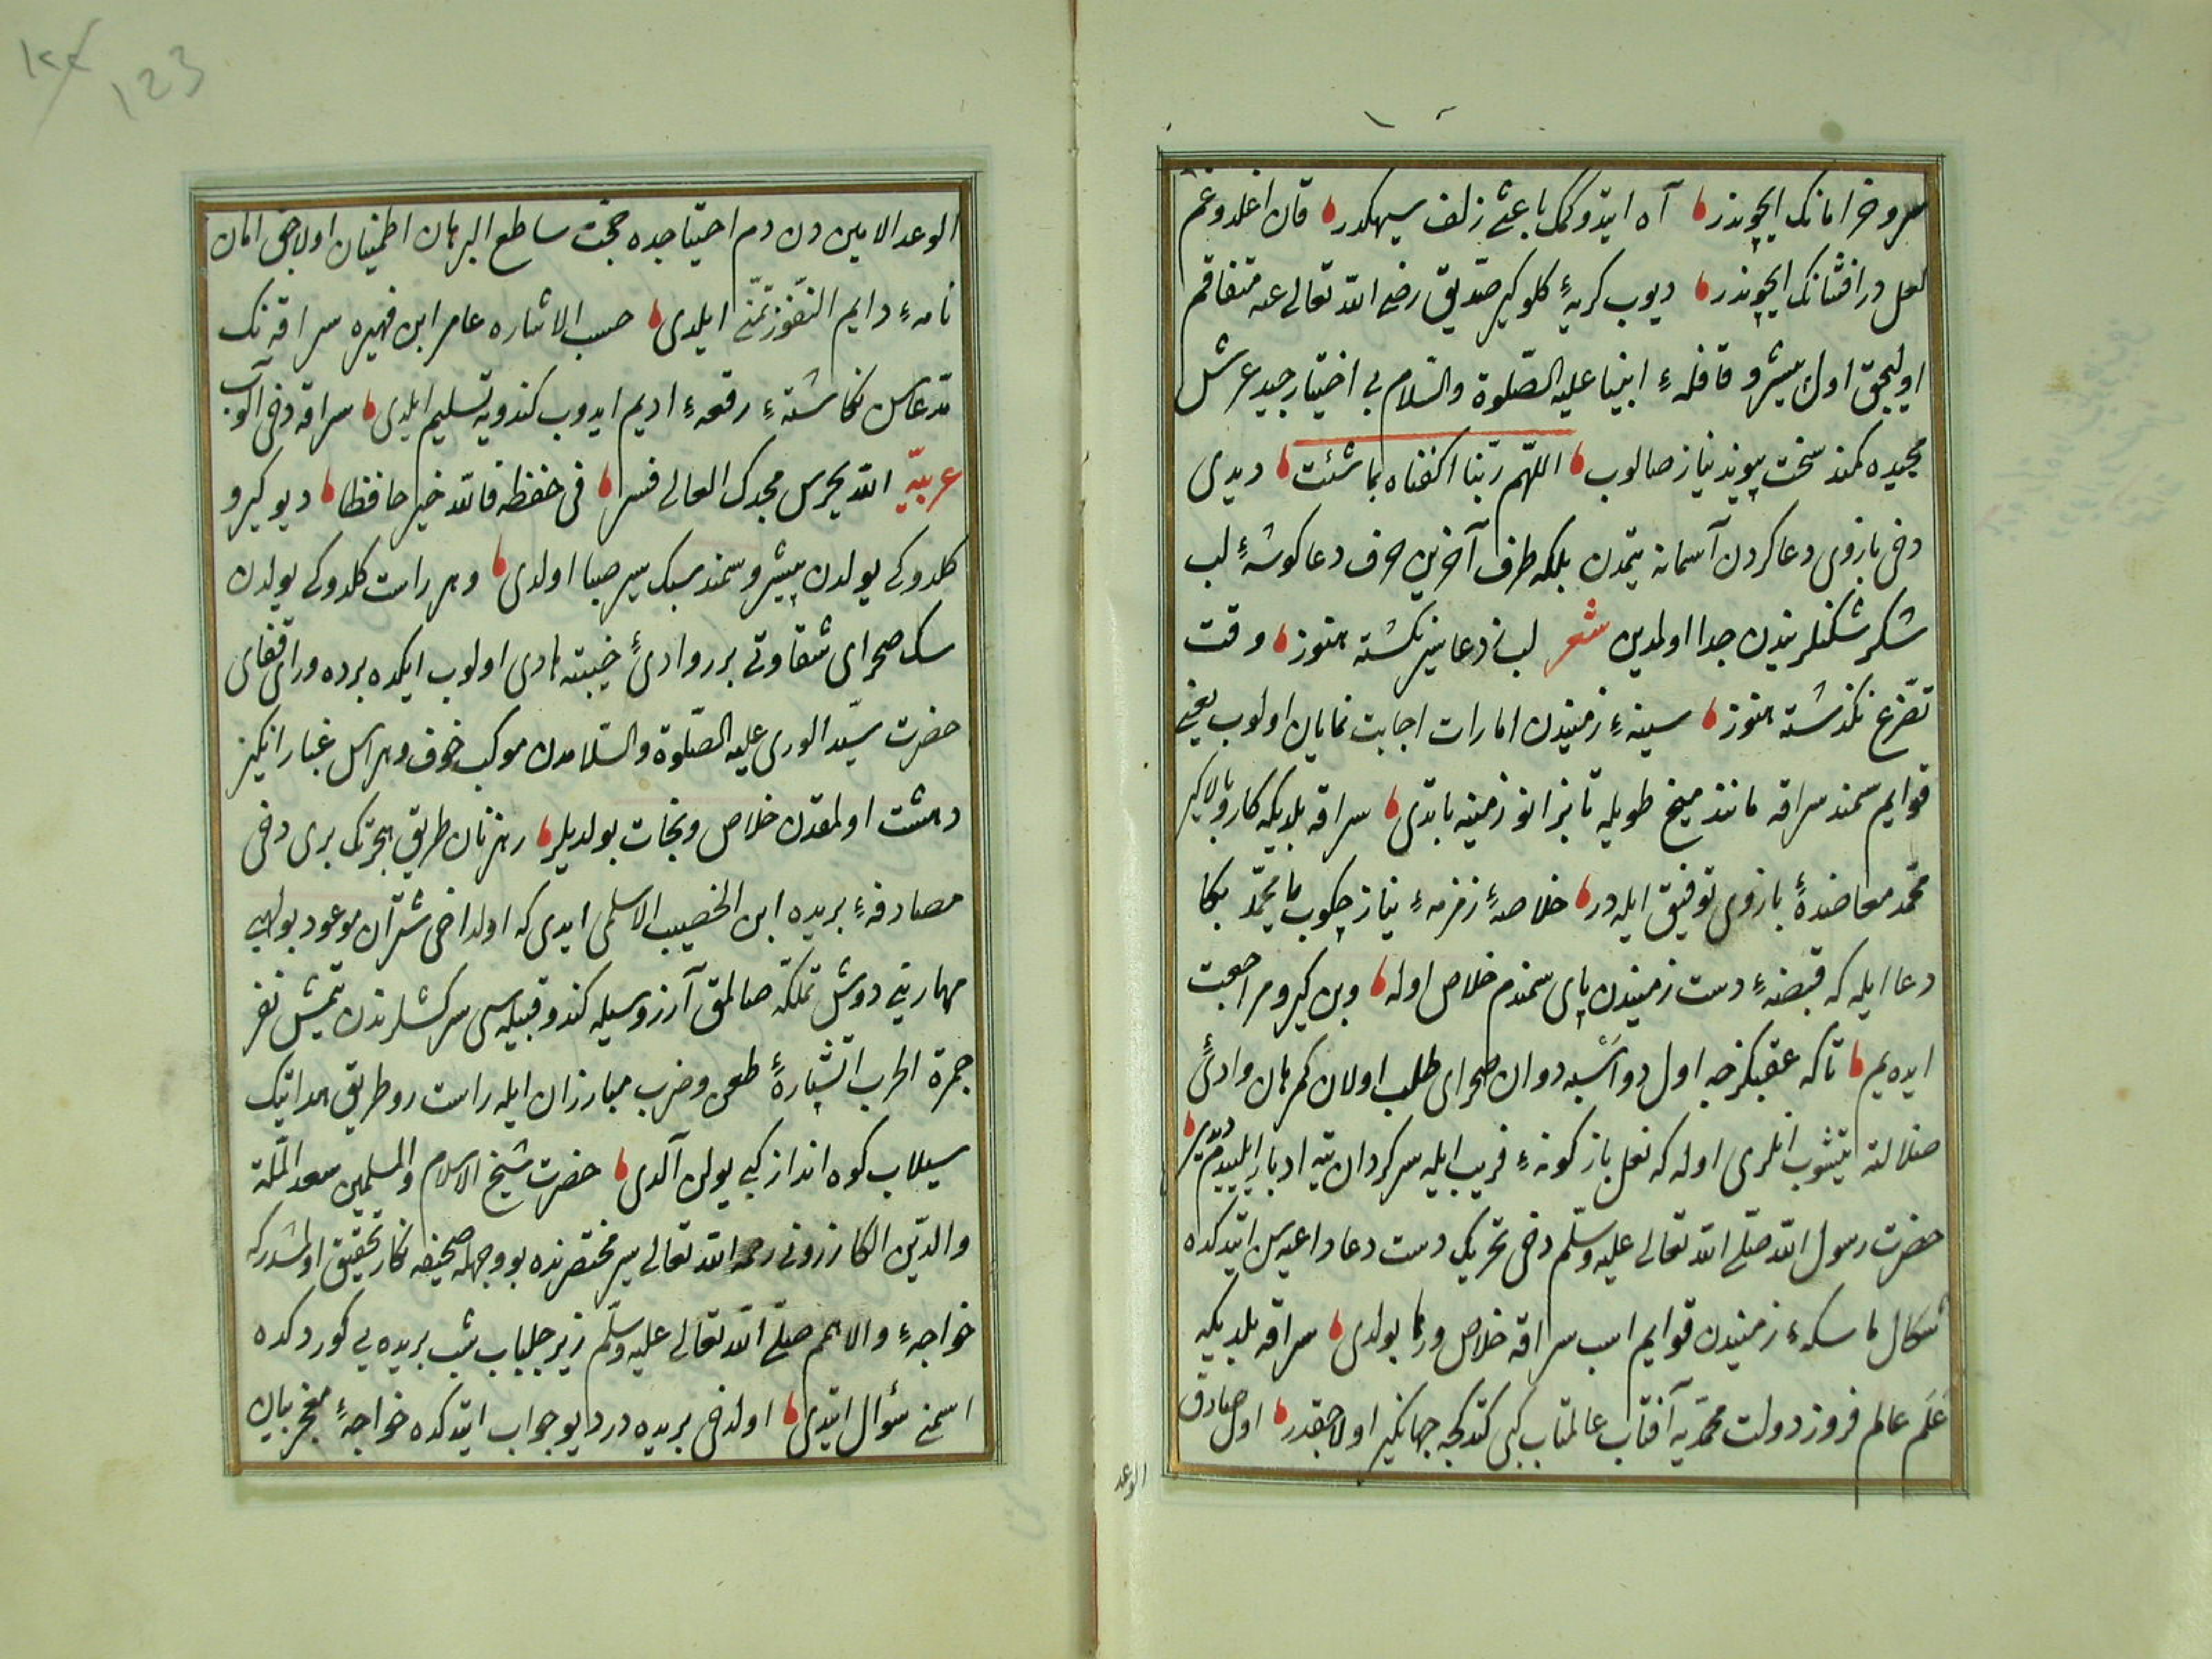 سرو خرامانك ایچوندر آه ایتدوكك باعثی زلف سیهكدر قان اغلدوغم
لعل درافشانك ایچوندر دیوب كریهٔ كلوكیر صدیق رضی الله تعالی عنه متفاقم
اولیجق اول پیشرو قافلهٔ انبیا علیه الصلوة والسلام بی اختیار جید عرش
مجیده كمند سخت پیوند نیاز صالوب اللهم ربنا اكفناه بما شئت دیدی
دخی بازوی دعا كردن آسمانه یتمدن بلكه طرف آخرین حرف دعا كوشهٔ لب
شكر شكنلریندن جدا اولمدین شعر لب از دعا نیز نكشته هنوز وقت
تضرع نكذشته هنوز سینهٔ زمیندن امارات اجابت نمایان اولوب یعنی
قوایم سمند سراقه مانند میخ طویله تا بزانو زمینه باتدی سراقه بلدیكه كار وبالاكیر
محمد معاضدهٔ بازوی توفیق ایله در خلاصهٔ زمزمهٔ نیاز چكوب یا محمد بكا
دعا ایله كه قبضهٔ دست زمیندن پای سمندم خلاص اوله وبن كیرو مراجعت
ایده یم تا كه عقبكزجه اول دواسبه دوان صحرای طلب اولان كمرهان وادئ
ضلالته یتیشوب انلری اوله كه نعل بازكونهٔ فریب ایله سركردان تیه ادبار ایلیه یم دیدی
حضرت رسول الله صلی الله تعالی علیه وسلم دخی تحریك دست دعا داعیه سن ایتدكده
شكال ماسكهٔ زمیندن قوایم اسب سراقه خلاص ورها بولدی سراقه بلدیكه
علم عالم فروز دولت محمدیه آفتاب عالمتاب كبی كتدكجه جهانكیر اولاجقدر اول صادق
الوعد
123
الوعد الامین دن دم احتیاجده حجت ساطع البرهان اطمینان اولاجق امان
نامهٔ دایم النفوذ تمنی ایلدی حسب الاشاره عامر ابن فهیره سراقه نك
مدعاسن نكاشتهٔ رقعهٔ ادیم ایدوب كندویه تسلیم ایلدی سراقه دخی آلوب
عربیه الله یحرس مجدك العالی فسر فی حفظه فالله خیر حافظا دیو كیرو
كلدوكی یولدن پیشرو سمند سبك سیر صبا اولدی وهر راست كلدوكی یولدن
سك صحرای شقاوتی بررو وادئ خیبته هادی اولوب ایكده برده ورای قفای
حضرت سید الوری علیه الصلوة والسلامدن موكب خوف وهراس غبار انكیز
دهشت اولمقدن خلاص ونجات بولدیلر رهزنان طریق هجرتك بری دخی
مصادفهٔ بریده ابن الخصیب الاسلمی ایدی كه اولدخی شتران موعود بولهبی
مهارینی دوش تملكه صالمق آرزوسیله كندو قبیله سی سركشلرندن یتمش نفر
جمرة الحرب آتشپارهٔ طعن وضرب مبارزان ایله راست رو طریق هدایتك
سیلاب كوه انداز كبی یولن آلدی حضرت شیخ الاسلام والمسلمین سعد الملة
والدین الكازرونی رحمه الله تعالی سیر مختصرنده بو وجهله صحیفه نكار تحقیق اولمشدركه
خواجهٔ والا همم صلی الله تعالی علیه وسلم زیر جلباب شب بریده یی كوردكده
اسمنی سؤال ایتدی اولدخی بریده در دیو جواب ایتدكده خواجهٔ معجز بیان